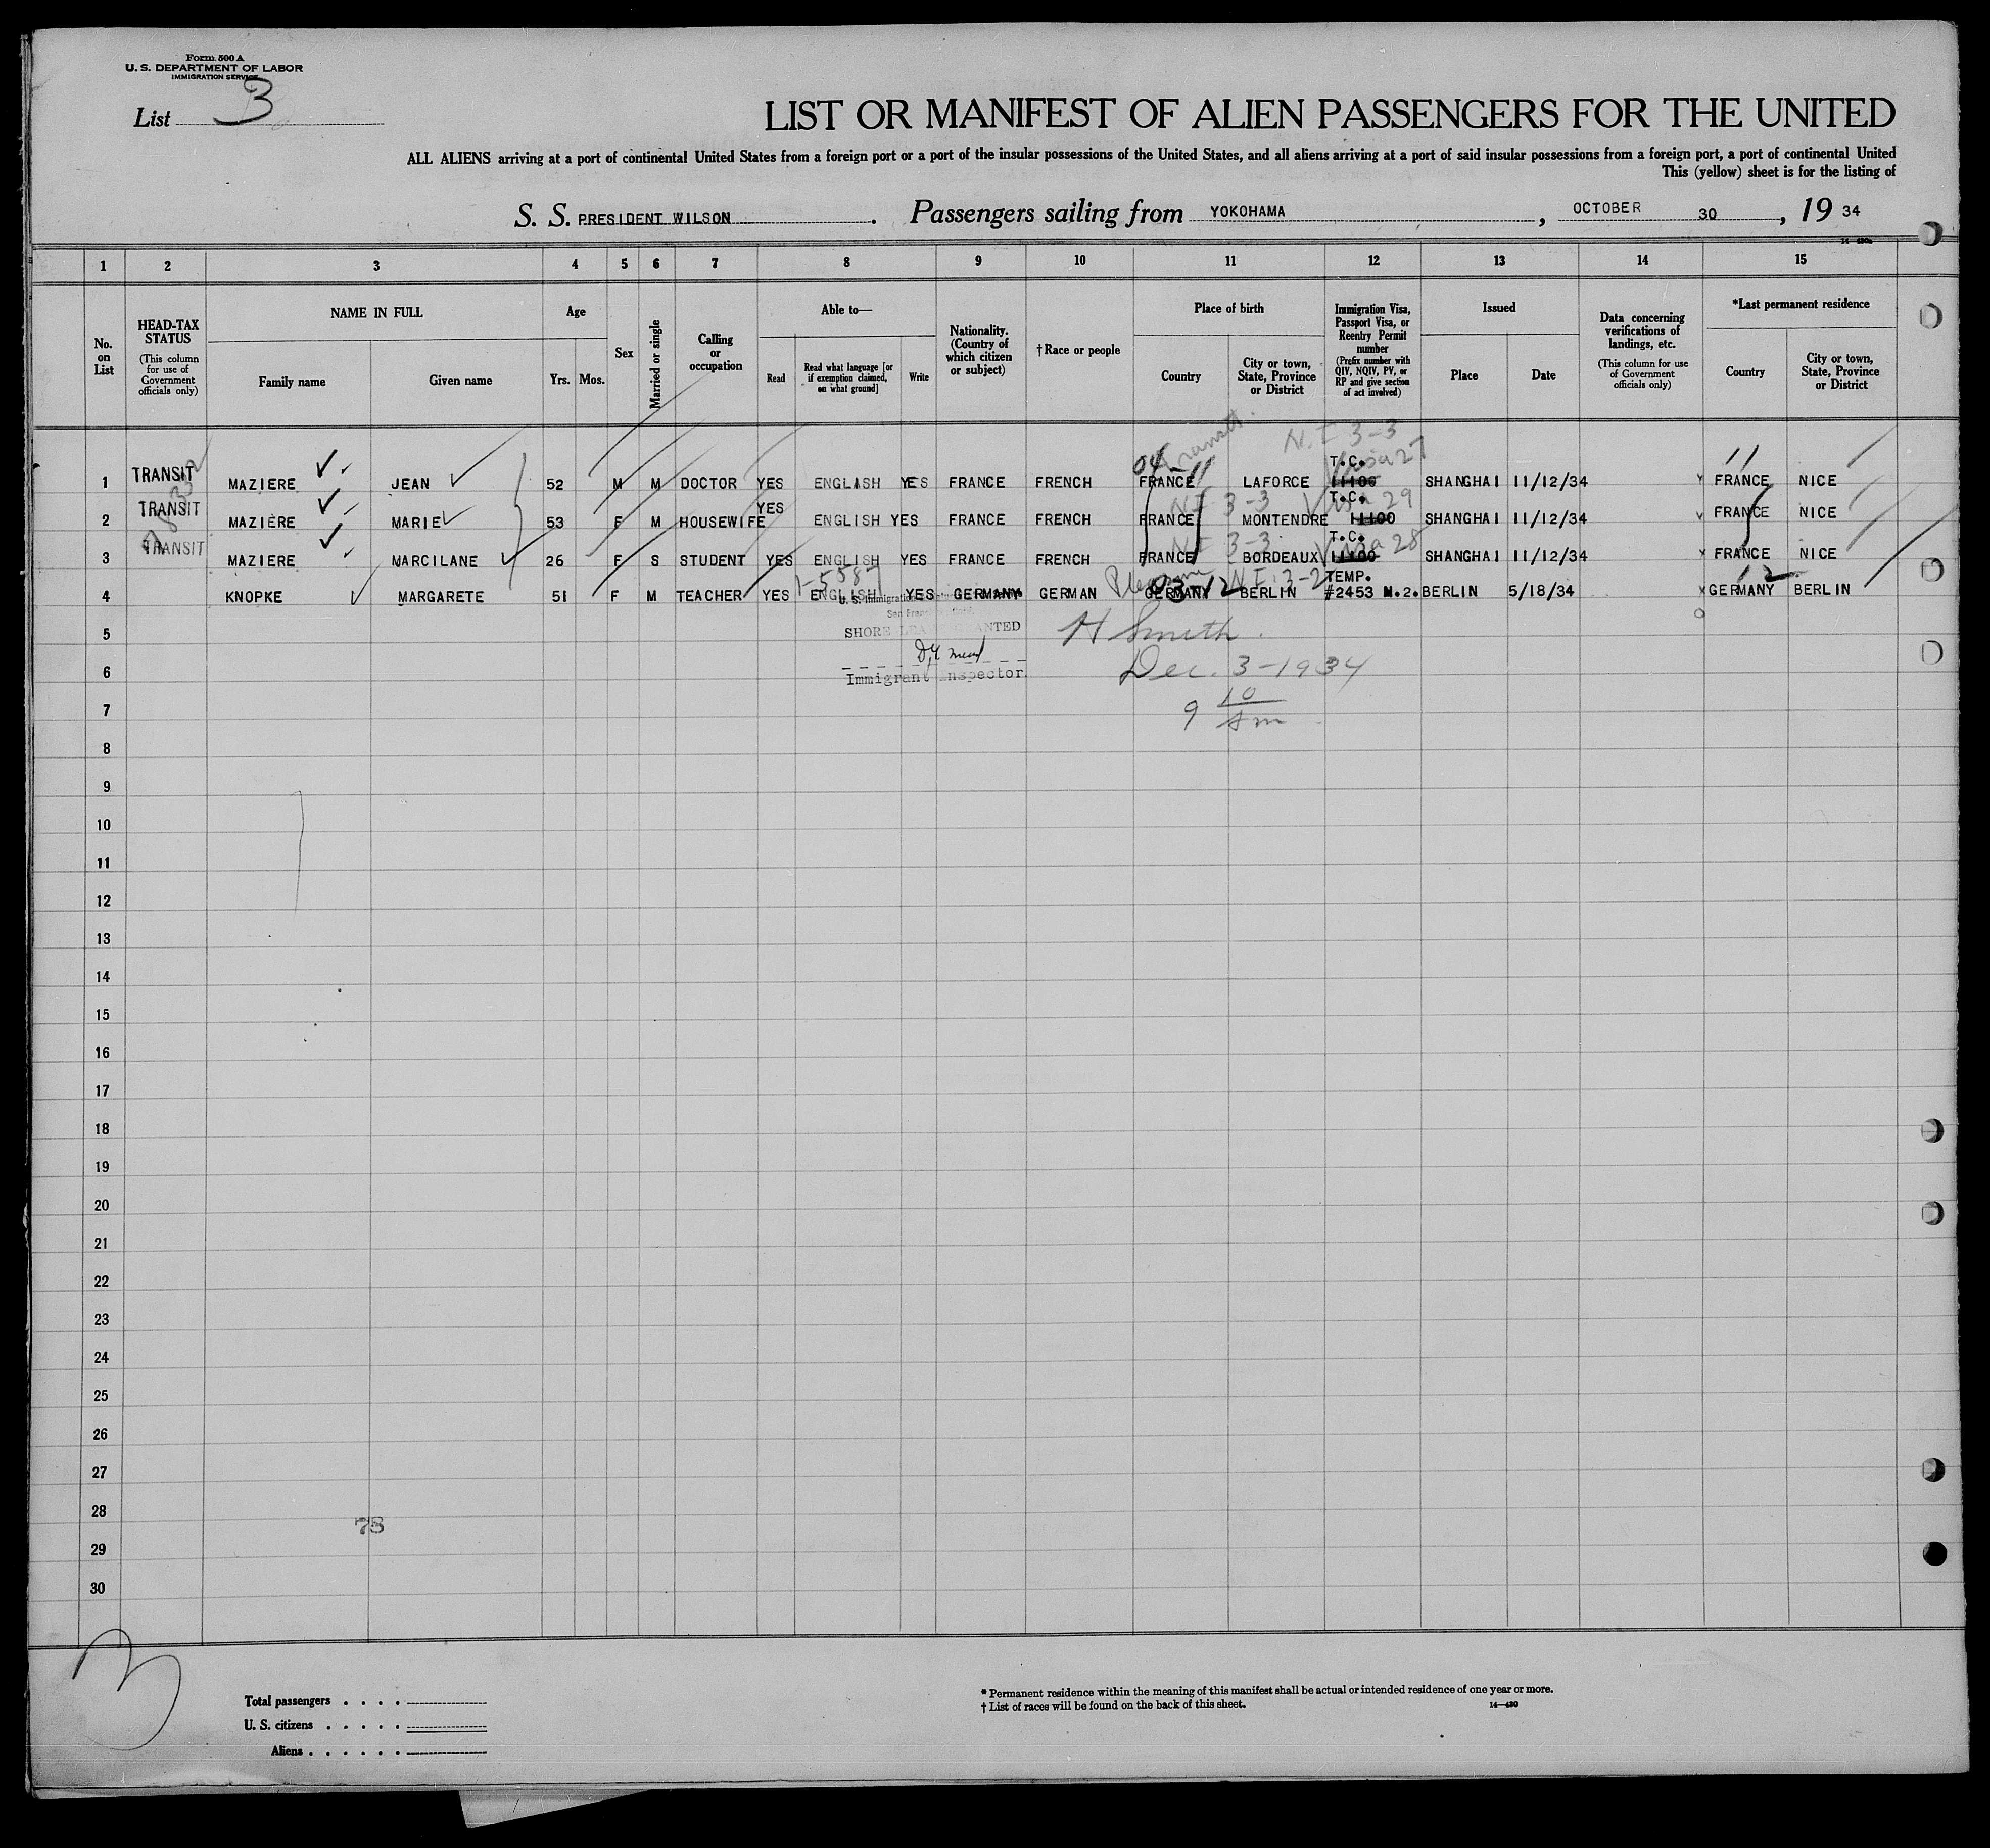 Form 500 A
U. S. DEPARTMENT OF LABOR
IMMIGRATION SERVICE
List 3
LIST OR MANIFEST OF ALIEN PASSENGERS FOR THE UNITED
ALL ALIENS arriving at a port of continental United States from a foreign port or a port of the insular possessions of the United States, and all aliens arriving at a port of said insular possessions from a foreign port, a port of continental United
This (yellow) sheet is for the listing of
S. S. PRESIDENT WILSON. Passengers sailing from YOKOHAMA, OCTOBER 30, 19 34
1 2 3 4 5 6 7 8 9 10 11 12 13 14 15
No. on List
HEAD-TAX STATUS (This column for use of Government officials only)
NAME IN FULL
Family name Given name
Age
Yrs. Mos.
Sex
Married or single
Calling or occupation
Able to—
Read
Read what language [or if exemption claimed, on what ground]
Write
Nationality. (Country of which citizen or subject)
†Race or people
Place of birth
Country
City or town, State, Province or District
Immigration Visa, Passport Visa, or Reentry Permit number (Prefix number with QIV, NQIV, PV, or RP and give section of act involved)
Issued
Place Date
Data concerning verifications of landings, etc. (This column for use of Government officials only)
*Last permanent residence
Country
City or town, State, Province or District
Transit N.I 3-3
04-11 T.C. Visa 27 11
1 TRANSIT MAZIERE JEAN 52 M M DOCTOR YES ENGLISH YES FRANCE FRENCH FRANCE LAFORCE 11100 SHANGHAI 11/12/34 FRANCE NICE
N I 3-3 T.C. Visa 29
2 TRANSIT MAZIERE MARIE 53 F M HOUSEWIFE YES ENGLISH YES FRANCE FRENCH FRANCE MONTENDRE 11100 SHANGHAI 11/12/34 FRANCE NICE
N I 3-3 T.C. Visa 28
3 TRANSIT MAZIERE MARCILANE 26 F S STUDENT YES ENGLISH YES FRANCE FRENCH FRANCE BORDEAUX 11100 SHANGHAI 11/12/34 FRANCE NICE
1-5587 Pleasure N.I. 3-2 TEMP. 12
4 KNOPKE MARGARETE 51 F M TEACHER YES ENGLISH YES GERMANY GERMAN GERMANY 03-12 BERLIN #2453 M.2. BERLIN 5/18/34 GERMANY BERLIN
U. S. Immigration
San Fran
5
SHORE LEAVE GRANTED
H Smith
6
Immigrant Inspector
Dec. 3-1934
7
9 10 Am
8
9
10
11
12
13
14
15
16
17
18
19
20
21
22
23
24
25
26
27
28
78
29
30
3
Total passengers
U. S. citizens
Aliens
* Permanent residence within the meaning of this manifest shall be actual or intended residence of one year or more.
† List of races will be found on the back of this sheet. 14—430